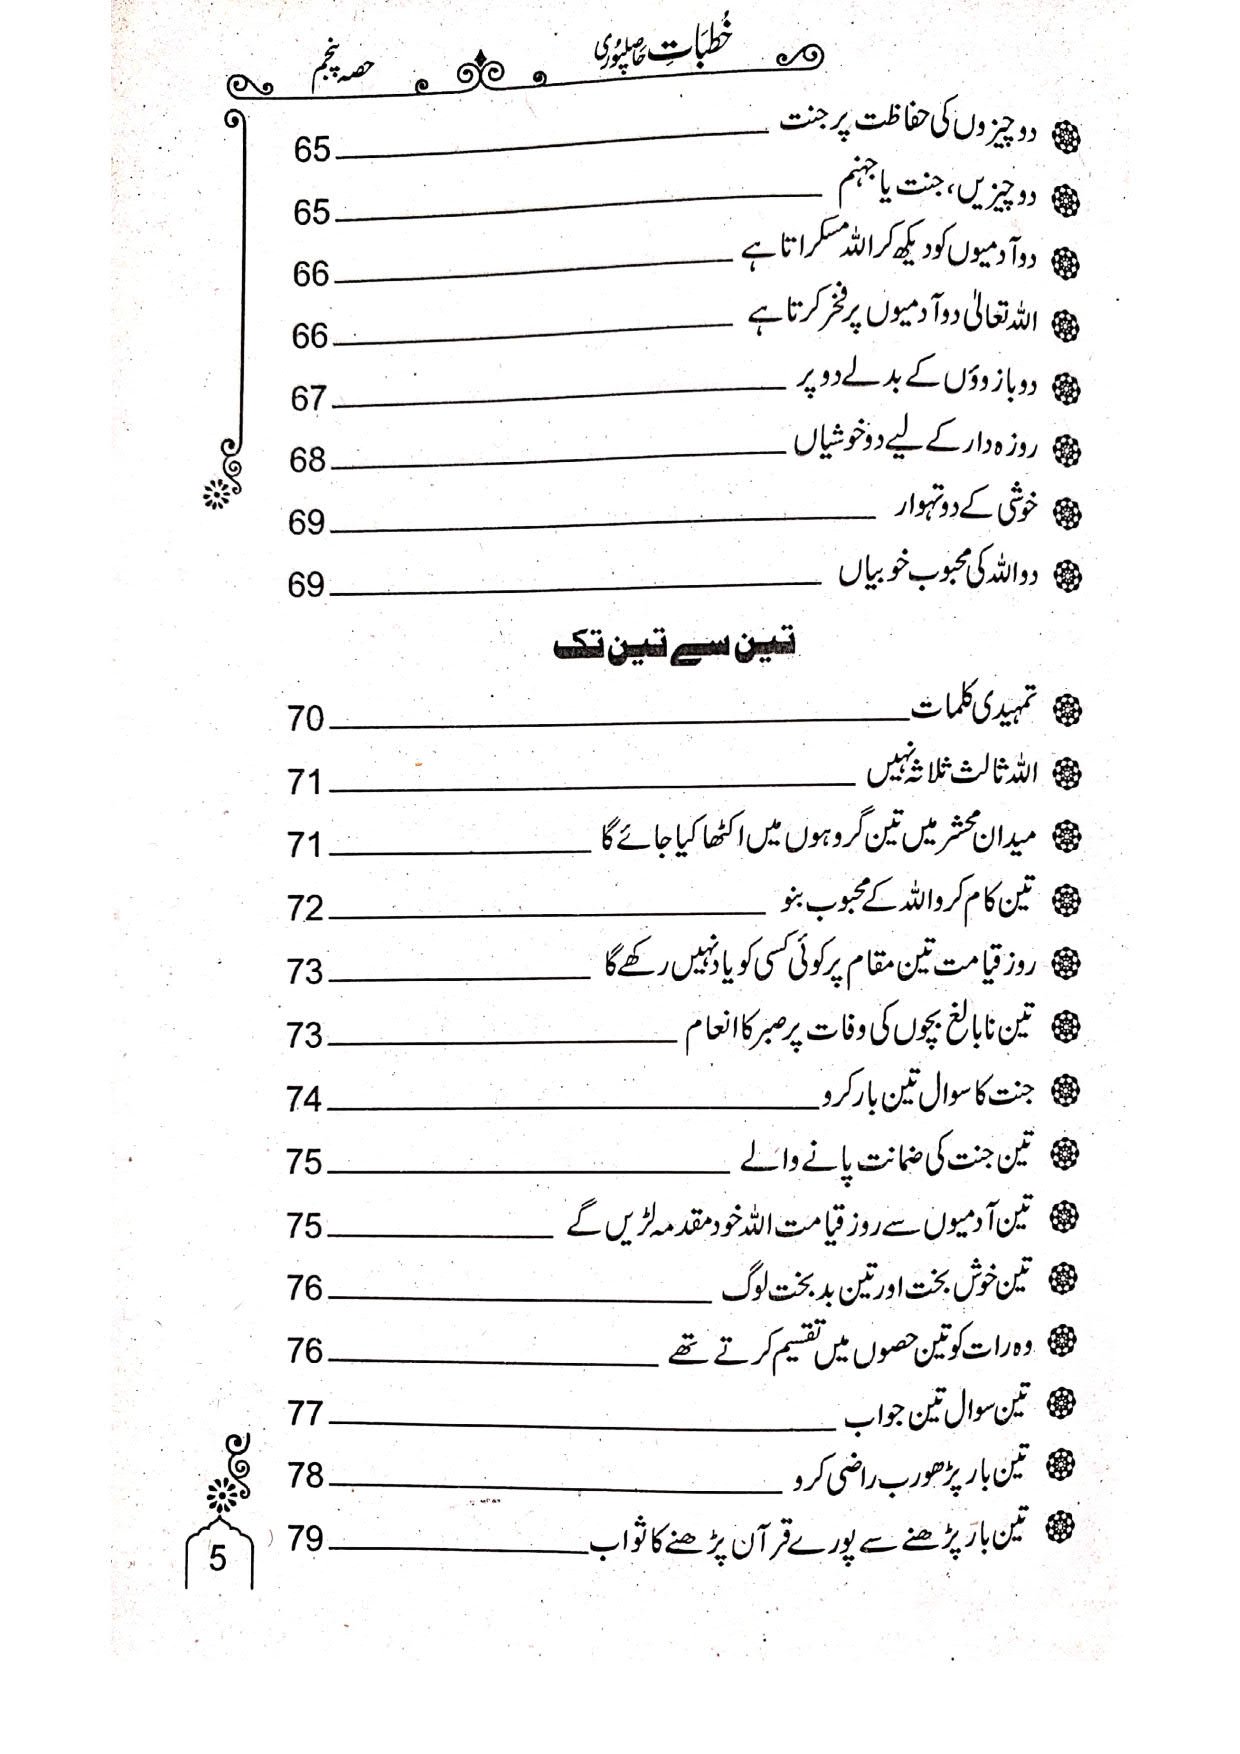 خُطبَاتِ حاصلپوری
حصہ پنجم
دو چیزوں کی حفاظت پر جنت 65
دو چیزیں، جنت یا جہنم 65
دو آدمیوں کو دیکھ کر اللہ مسکراتا ہے 66
اللہ تعالیٰ دو آدمیوں پر فخر کرتا ہے 66
دو بازوؤں کے بدلے دو پر 67
روزہ دار کے لیے دو خوشیاں 68
خوشی کے دو تہوار 69
دو اللہ کی محبوب خوبیاں 69
تین سے تین تک
تمہیدی کلمات 70
اللہ ثالث ثلاثہ نہیں 71
میدان محشر میں تین گروہوں میں اکٹھا کیا جائے گا 71
تین کام کرو اللہ کے محبوب بنو 72
روز قیامت تین مقام پر کوئی کسی کو یاد نہیں رکھے گا 73
تین نابالغ بچوں کی وفات پر صبر کا انعام 73
جنت کا سوال تین بار کرو 74
تین جنت کی ضمانت پانے والے 75
تین آدمیوں سے روز قیامت اللہ خود مقدمہ لڑیں گے 75
تین خوش بخت اور تین بد بخت لوگ 76
وہ رات کو تین حصوں میں تقسیم کرتے تھے 76
تین سوال تین جواب 77
تین بار پڑھو رب راضی کرو 78
تین بار پڑھنے سے پورے قرآن پڑھنے کا ثواب 79
5